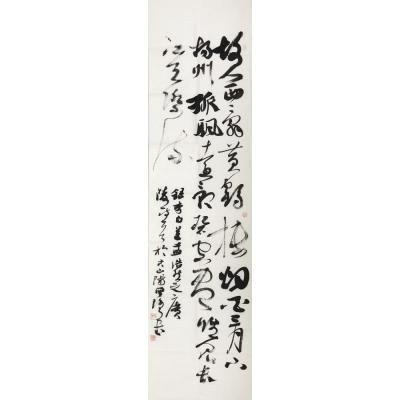 故人西辞黄鹤楼烟花三月下
扬州孤帆远影碧空尽唯见长
江天际流
录李白送孟浩然之广
陵诗